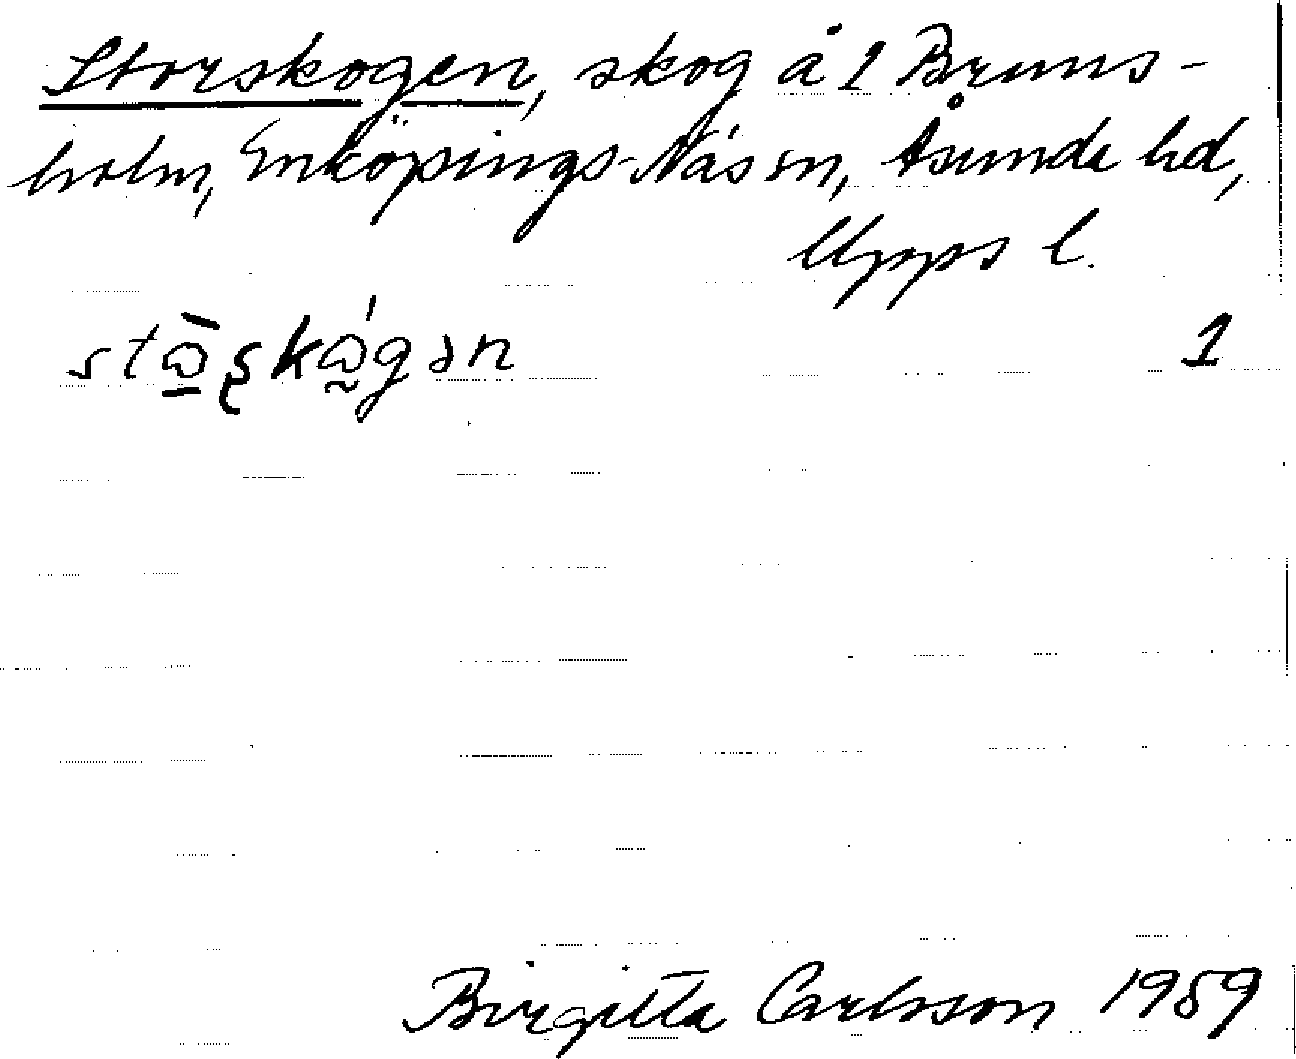 Storskogen, skog å 1 Bruns-
holm, Enköpings-Näs sn, Åsunda hd,
Upps l.
1
Birgitta Carlsson 1959